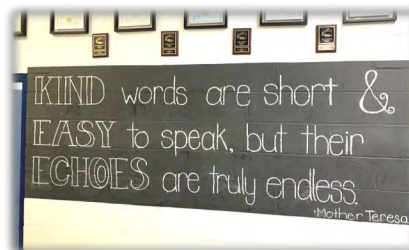 KIND words are short &
EASY to speak, but their
ECHOES are truly endless.
·Mother Teresa